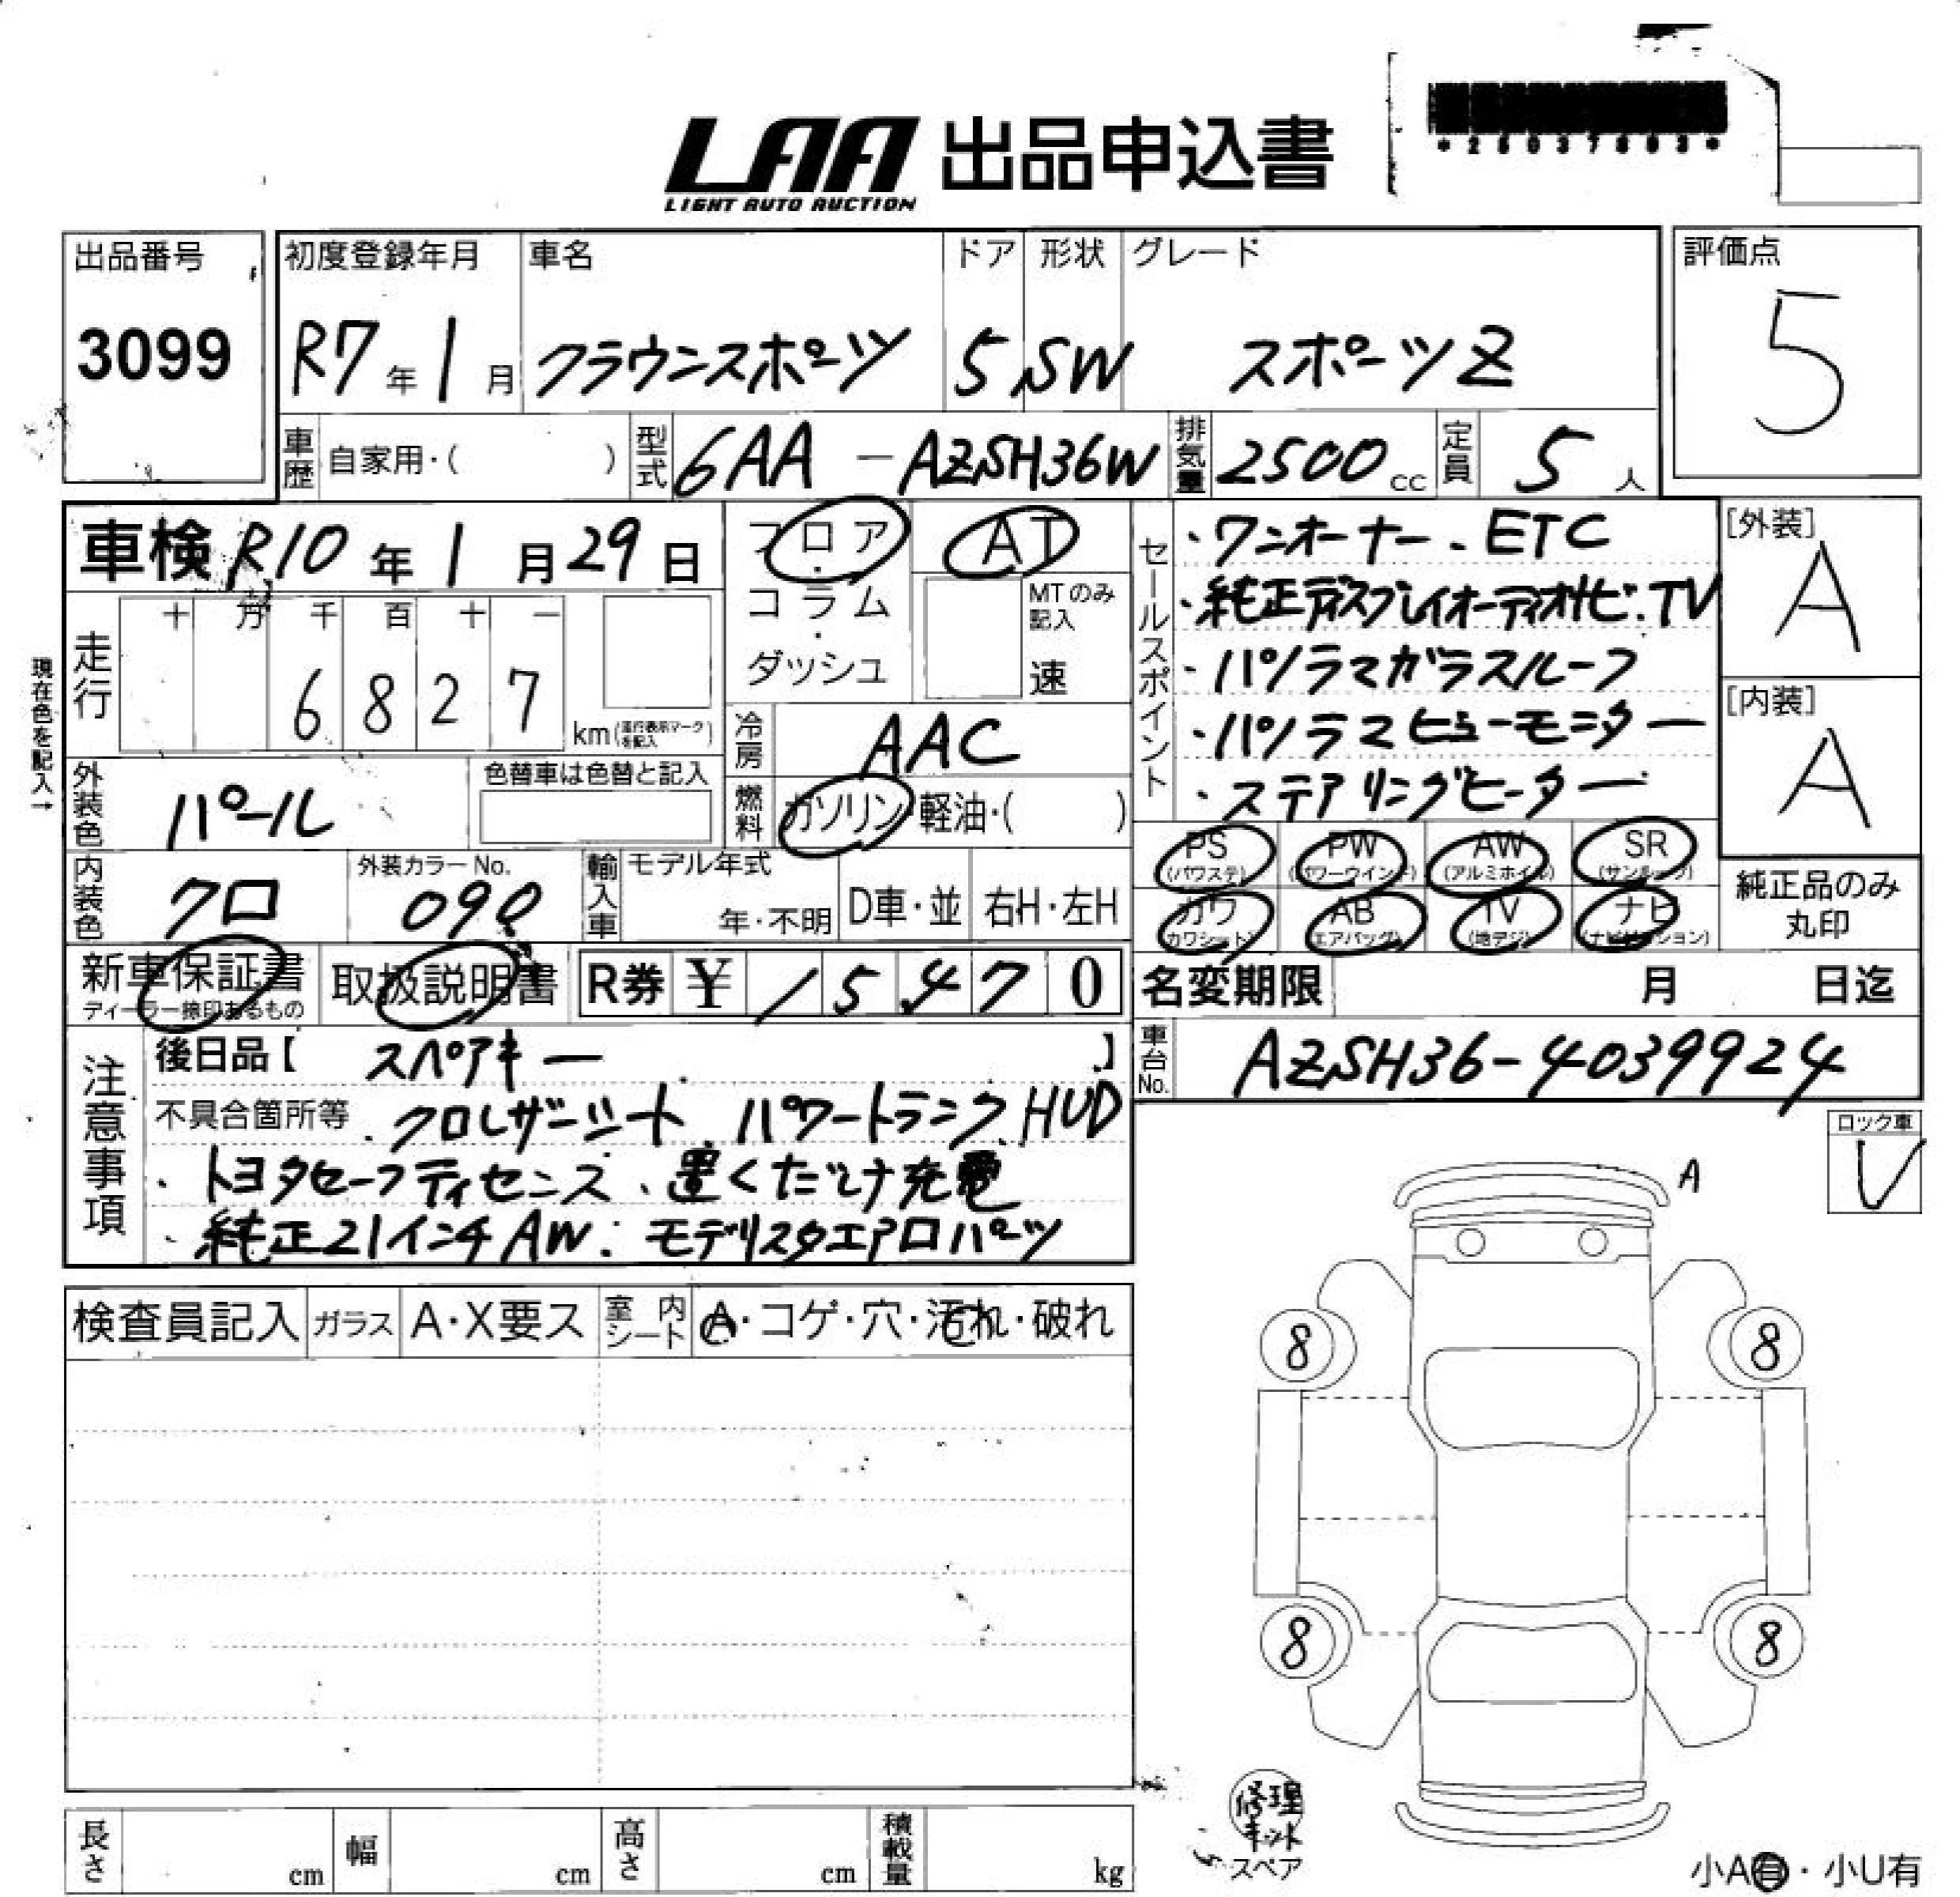 LAA 出品申込書
LIGHT AUTO AUCTION
出品番号
3099
初度登録年月
R7年1月
車名
クラウンスポーツ
ドア
5
形状
SW
グレード
スポーツZ
評価点
5
車歴 自家用・( )
型式 6AA - AZSH36W
排気量 2500cc
定員 5人
車検 R10年1月29日
フロア・コラム・ダッシュ
AT
MTのみ記入
速
セールスポイント
・ワンオーナー、ETC
・純正ディスプレイオーディオナビ・TV
・パノラマガラスルーフ
・パノラマビューモニター
・ステアリングヒーター
[外装]
A
[内装]
A
現在色を記入→
走行
十 万 千 百 十 一
6 8 2 7
km(走行表示マークを記入)
冷房 AAC
燃料 ガソリン・軽油・( )
外装色 パール
色替車は色替と記入
内装色 クロ
外装カラーNo.
輸入車
モデル年式
年・不明
D車・並
右H・左H
PS (パワステ)
PW (パワーウインド)
AW (アルミホイル)
SR (サンルーフ)
カワ (カワシート)
AB (エアバッグ)
TV (地デジ)
ナビ (ナビゲーション)
純正品のみ丸印
新車保証書
ディーラー捺印あるもの
取扱説明書
R券 ¥ 15470
名変期限 月 日迄
車台No. AZSH36-4039924
注意事項
後日品【 スペアキー 】
不具合箇所等 ・クロレザーシート、パワートランク、HUD
・トヨタセーフティセンス、置くだけ充電
・純正21インチAW・モデリスタエアロパーツ
ロック車
レ
A
検査員記入
ガラス A・X要ス
室内シート A・コゲ・穴・汚れ・破れ
8
8
8
8
修理キット
スペア
長さ cm
幅 cm
高さ cm
積載量 kg
小A有・小U有